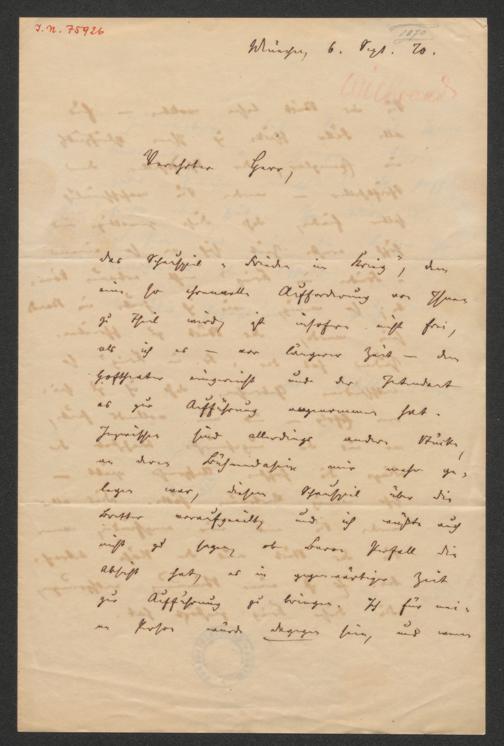 J.N. 75926
1870
München, 6. Sept. 70.
Wilbrandt
Verehrter Herr,
das Schauspiel "Frieden im Krieg", dem
eine so ehrenvolle Aufforderung von Ihnen
zu Theil wird, ist insofern nicht frei,
als ich es – vor längerer Zeit – dem
Hoftheater eingereicht und der Intendant
es zur Aufführung angenommen hat.
Inzwischen sind allerdings andere Stücke,
an deren Bühnendasein mir mehr ge-
legen war, diesem Schauspiel über die
Bretter vorausgeeilt, und ich wüßte auch
nicht zu sagen, ob Baron Perfall die
Absicht hat, es in gegenwärtiger Zeit
zur Aufführung zu bringen. Ich für mei-
ne Person würde dagegen sein, und wenn